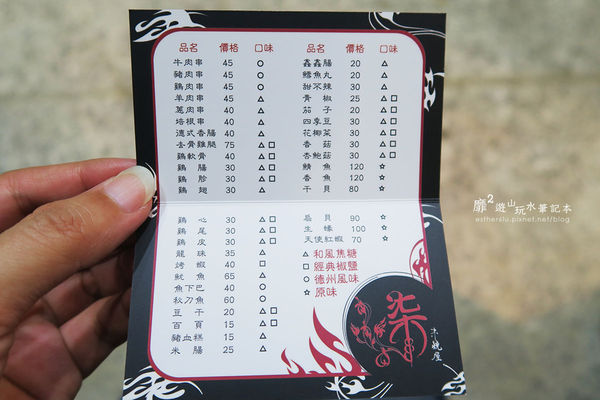 品名 價格 口味
牛肉串 45 ○
豬肉串 45 ○
鷄肉串 45 ○
羊肉串 45 △
蔥肉串 40 △
培根串 40 △
德式香腸 40 △
去骨雞腿 75 △□
鷄軟骨 40 △□
鷄腸 30 △□
鷄胗 30 △□
鷄翅 30 △
鷄心 30 △□
鷄尾 30 △□
鷄皮 30 △□
龍珠 35 △
烤蝦 40 □
魷魚 65 △
魚下巴 40 ○
秋刀魚 60 ○
豆干 20 △□
百頁 15 △□
豬血糕 15 △
米腸 25 △
品名 價格 口味
鑫鑫腸 20 △
鱈魚丸 20 △
甜不辣 30 △
青椒 25 △□
茄子 20 △□
四季豆 30 △□
花椰菜 30 △□
香菇 30 △□
杏鮑菇 30 △□
鯖魚 120 ☆
香魚 120 ☆
干貝 80 ☆
扇貝 90 ☆
生蠔 100 ☆
天使紅蝦 70 ☆
△ 和風焦糖
□ 經典椒鹽
○ 德州風味
☆ 原味
柒
柒燒屋
靡²遊山玩水筆記本
estherlilu.pixnet.net/blog